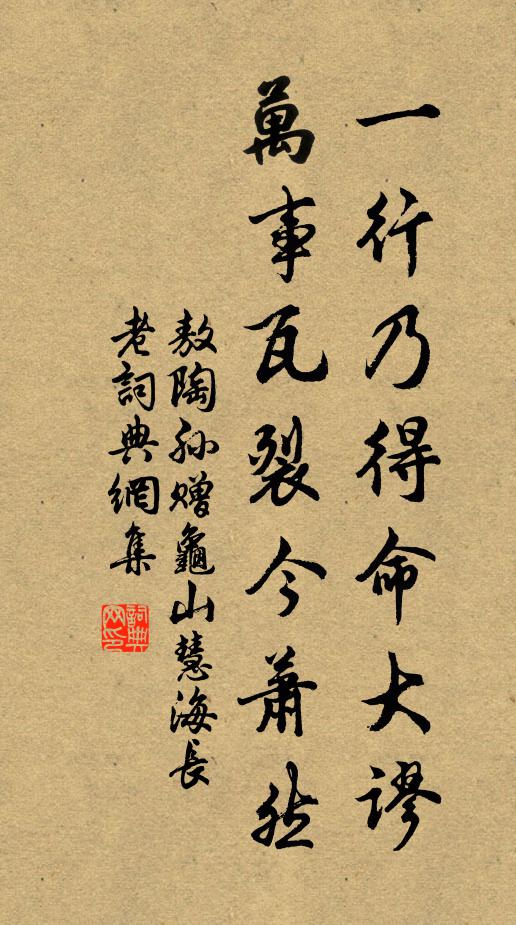 一行乃得命大謬
萬事瓦裂今蕭然
敖陶孫贈龜山慧海長
老詞典網集
詞典
网印